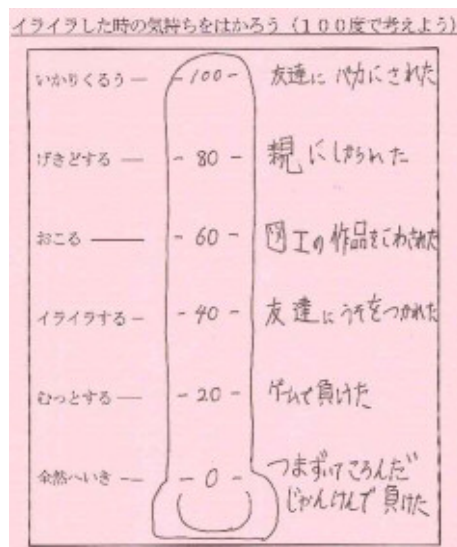 イライラした時の気持ちをはかろう（１００度で考えよう）
いかりくるう — -100- 友達に バカにされた
げきどする — - 80 - 親にしかられた
おこる —— - 60 - 図工の作品をこわされた
イライラする — - 40 - 友達にうそをつかれた
むっとする — - 20 - ゲームで負けた
全然へいき -- - 0 - つまずいてころんだ
じゃんけんで負けた